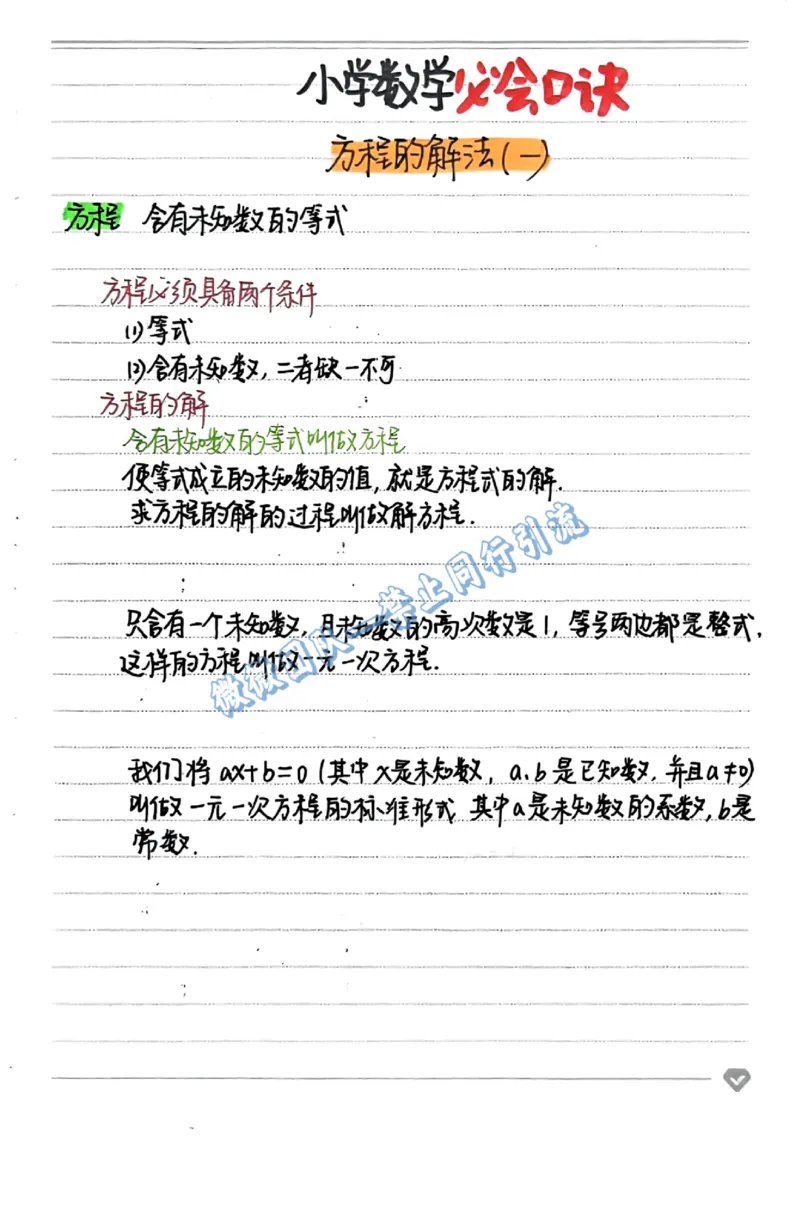 小学数学必会口诀
方程的解法(一)
方程 含有未知数的等式
方程必须具备两个条件
(1)等式
(2)含有未知数,二者缺一不可
方程的解
含有未知数的等式叫做方程
使等式成立的未知数的值,就是方程式的解.
求方程的解的过程叫做解方程.
只含有一个未知数,且未知数的高次数是1,等号两边都是整式,
这样的方程叫做一元一次方程.
微微团队—禁止同行引流
我们将ax+b=0(其中x是未知数,a.b是已知数,并且a≠0)
叫做一元一次方程的标准形式 其中a是未知数的系数,b是
常数.